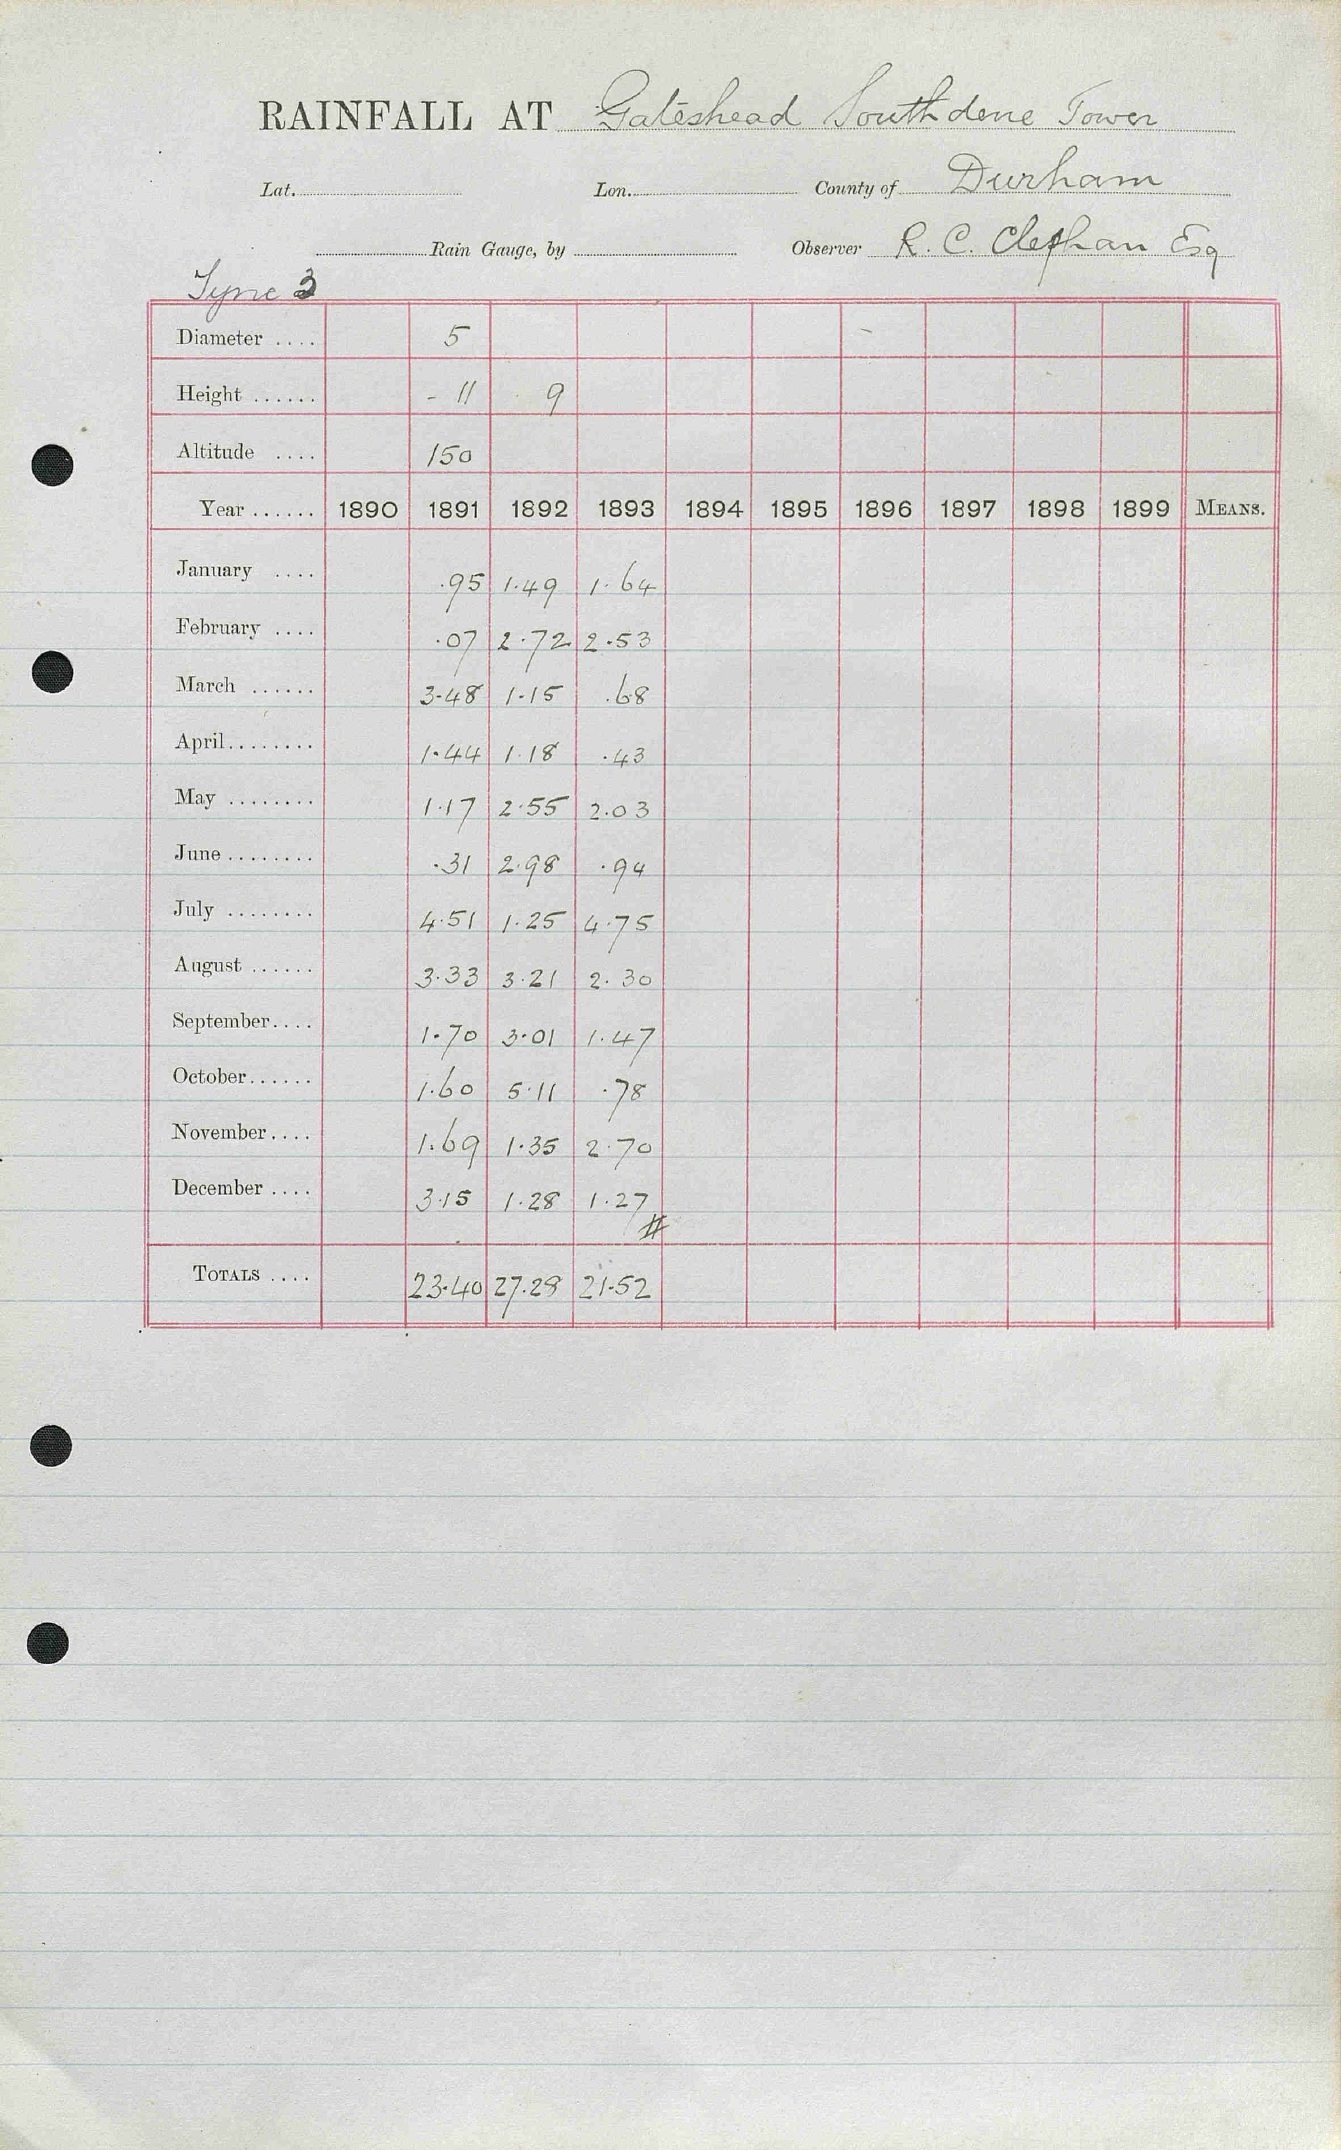 RAINFALL AT Gateshead Southdene Tower
Lat. Lon. County of Durham
Rain Gauge, by Observer R. C. Clephan Esq
Tyne 3
Diameter .... 5
Height ...... - 11 9
Altitude .... 150
Year ...... 1890 1891 1892 1893 1894 1895 1896 1897 1898 1899 MEANS.
January .... .95 1.49 1.64
February .... .07 2.72 2.53
March ...... 3.48 1.15 .68
April ........ 1.44 1.18 .43
May ........ 1.17 2.55 2.03
June ........ .31 2.98 .94
July ........ 4.51 1.25 4.75
August ...... 3.33 3.21 2.30
September.... 1.70 3.01 1.47
October...... 1.60 5.11 .78
November.... 1.69 1.35 2.70
December .... 3.15 1.28 1.27
#
TOTALS .... 23.40 27.28 21.52